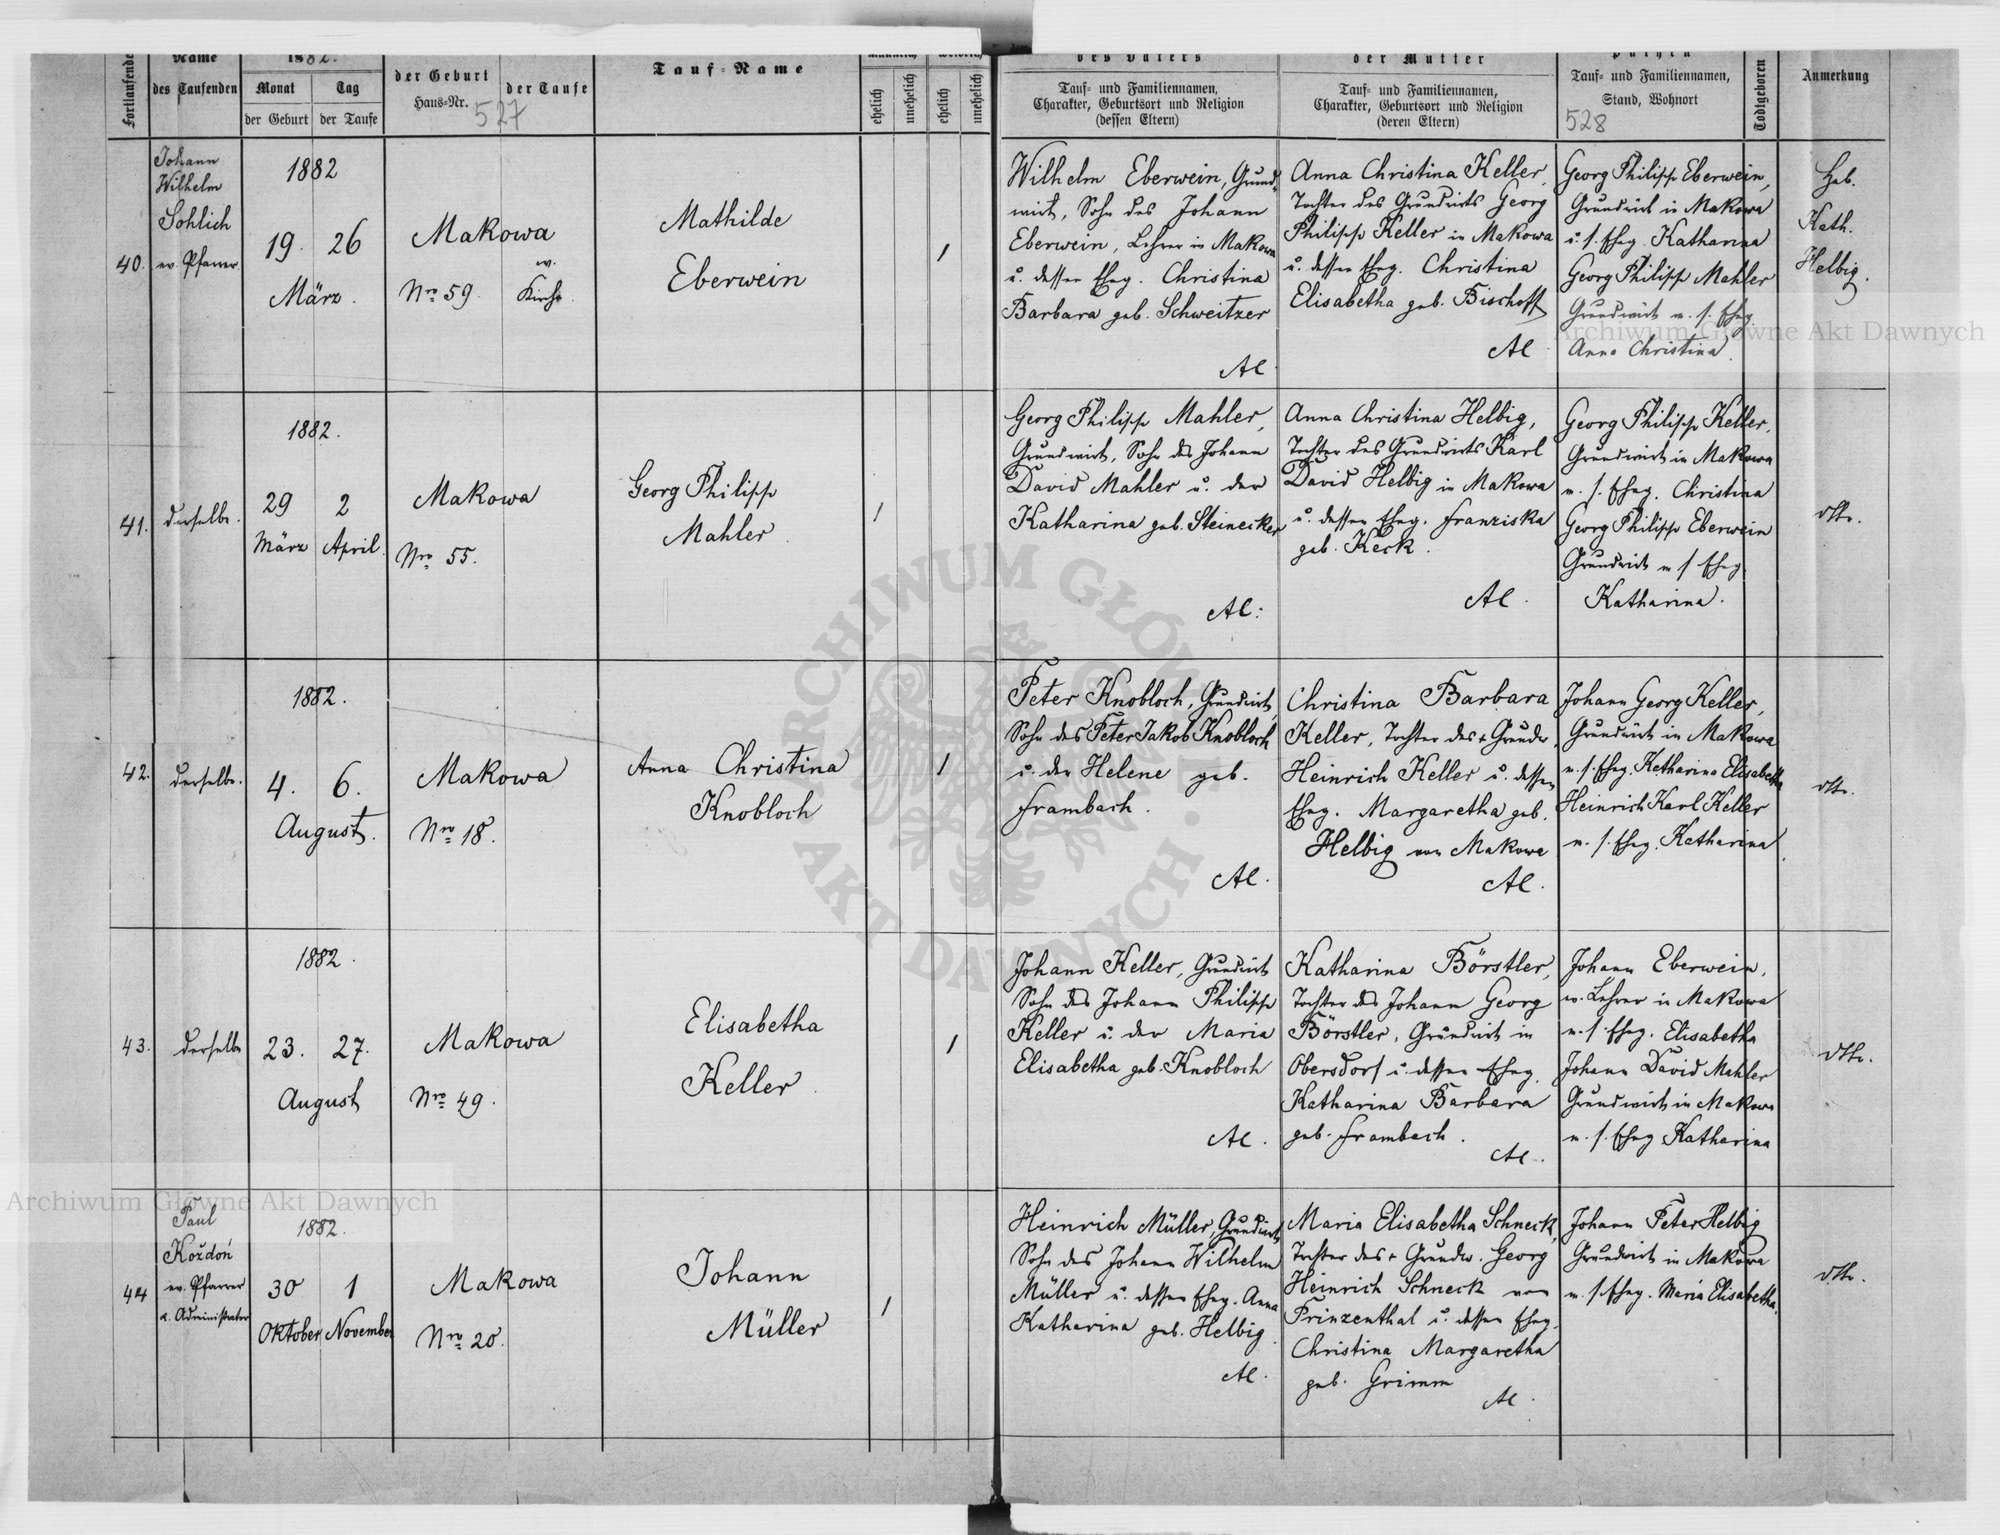 Fortlaufende
Name
des Taufenden
1882.
Monat
Tag
der Geburt
der Taufe
der Geburt
Haus=Nr.
527
der Taufe
Tauf=Name
männlich
weiblich
ehelich
unehelich
ehelich
unehelich
des Vaters
Tauf= und Familiennamen,
Charakter, Geburtsort und Religion
(dessen Eltern)
der Mutter
Tauf= und Familiennamen,
Charakter, Geburtsort und Religion
(deren Eltern)
Pathen
Tauf= und Familiennamen,
Stand, Wohnort
528
Todtgeboren
Anmerkung
40.
Johann
Wilhelm
Sohlich
ev. Pfarrer
1882
19. 26
März.
Makowa
Nro 59.
ev.
Kirche
Mathilde
Eberwein
1
Wilhelm Eberwein, Grund-
wirt, Sohn des Johann
Eberwein, Lehrer in Makowa
u. dessen Eheg. Christina
Barbara geb. Schweitzer
AC.
Anna Christina Keller,
Tochter des Grundwirts Georg
Philipp Keller in Makowa
u. dessen Eheg. Christina
Elisabetha geb. Bischoff
AC
Georg Philipp Eberwein,
Grundwirt in Makowa
u. s. Eheg. Katharina
Georg Philipp Mahler
Grundwirt u. s. Eheg.
Anna Christina.
Heb.
Kath.
Helbig.
Archiwum Główne Akt Dawnych
41.
derselbe.
1882.
29 2
März April.
Makowa
Nro 55.
Georg Philipp
Mahler.
1
Georg Philipp Mahler,
Grundwirt, Sohn des Johann
David Mahler u. der
Katharina geb. Steinecker
AC.
Anna Christina Helbig,
Tochter des Grundwirts Karl
David Helbig in Makowa
u. dessen Eheg. Franziska
geb. Keck.
AC.
Georg Philipp Keller,
Grundwirt in Makowa
u. s. Eheg. Christina
Georg Philipp Eberwein
Grundwirt u s Eheg.
Katharina.
dtto.
42.
derselbe.
1882.
4. 6.
August.
Makowa
Nro 18.
Anna Christina
Knobloch
1
Peter Knobloch, Grundwirt,
Sohn des Peter Jakob Knobloch
u. der Helene geb.
Frambach.
AC.
Christina Barbara
Keller, Tochter des + Grundw.
Heinrich Keller u. dessen
Eheg. Margaretha geb.
Helbig von Makowa
AC.
Johann Georg Keller,
Grundwirt in Makowa
u. s. Eheg. Katharina Elisabetha
Heinrich Karl Keller
u. s. Eheg. Katharina
dtto.
ARCHIWUM GŁÓWNE
AKT DAWNYCH
43.
derselbe
1882.
23. 27.
August
Makowa
Nro 49.
Elisabetha
Keller.
1
Johann Keller, Grundwirt
Sohn des Johann Philipp
Keller u. der Maria
Elisabetha geb. Knobloch
AC.
Katharina Börstler,
Tochter des Johann Georg
Börstler, Grundwirt in
Obersdorf u. dessen Eheg.
Katharina Barbara
geb. Frambach.
AC.
Johann Eberwein,
ev. Lehrer in Makowa
u. s. Eheg. Elisabetha
Johann David Mahler
Grundwirt in Makowa
u. s. Eheg Katharina
dtto.
Archiwum Główne Akt Dawnych
44
Paul
Kożdoń
ev. Pfarrer
u. Administrator
1882.
30 1
Oktober November
Makowa
Nro 20.
Johann
Müller
1
Heinrich Müller, Grundwirt
Sohn des Johann Wilhelm
Müller u. dessen Eheg. Anna
Katharina geb. Helbig.
AC.
Maria Elisabetha Schneck,
Tochter des + Grundw. Georg
Heinrich Schneck von
Prinzenthal u. dessen Eheg.
Christina Margaretha
geb. Grimm
AC.
Johann Peter Helbig
Grundwirt in Makowa
u. s. Eheg. Maria Elisabetha.
dtto.